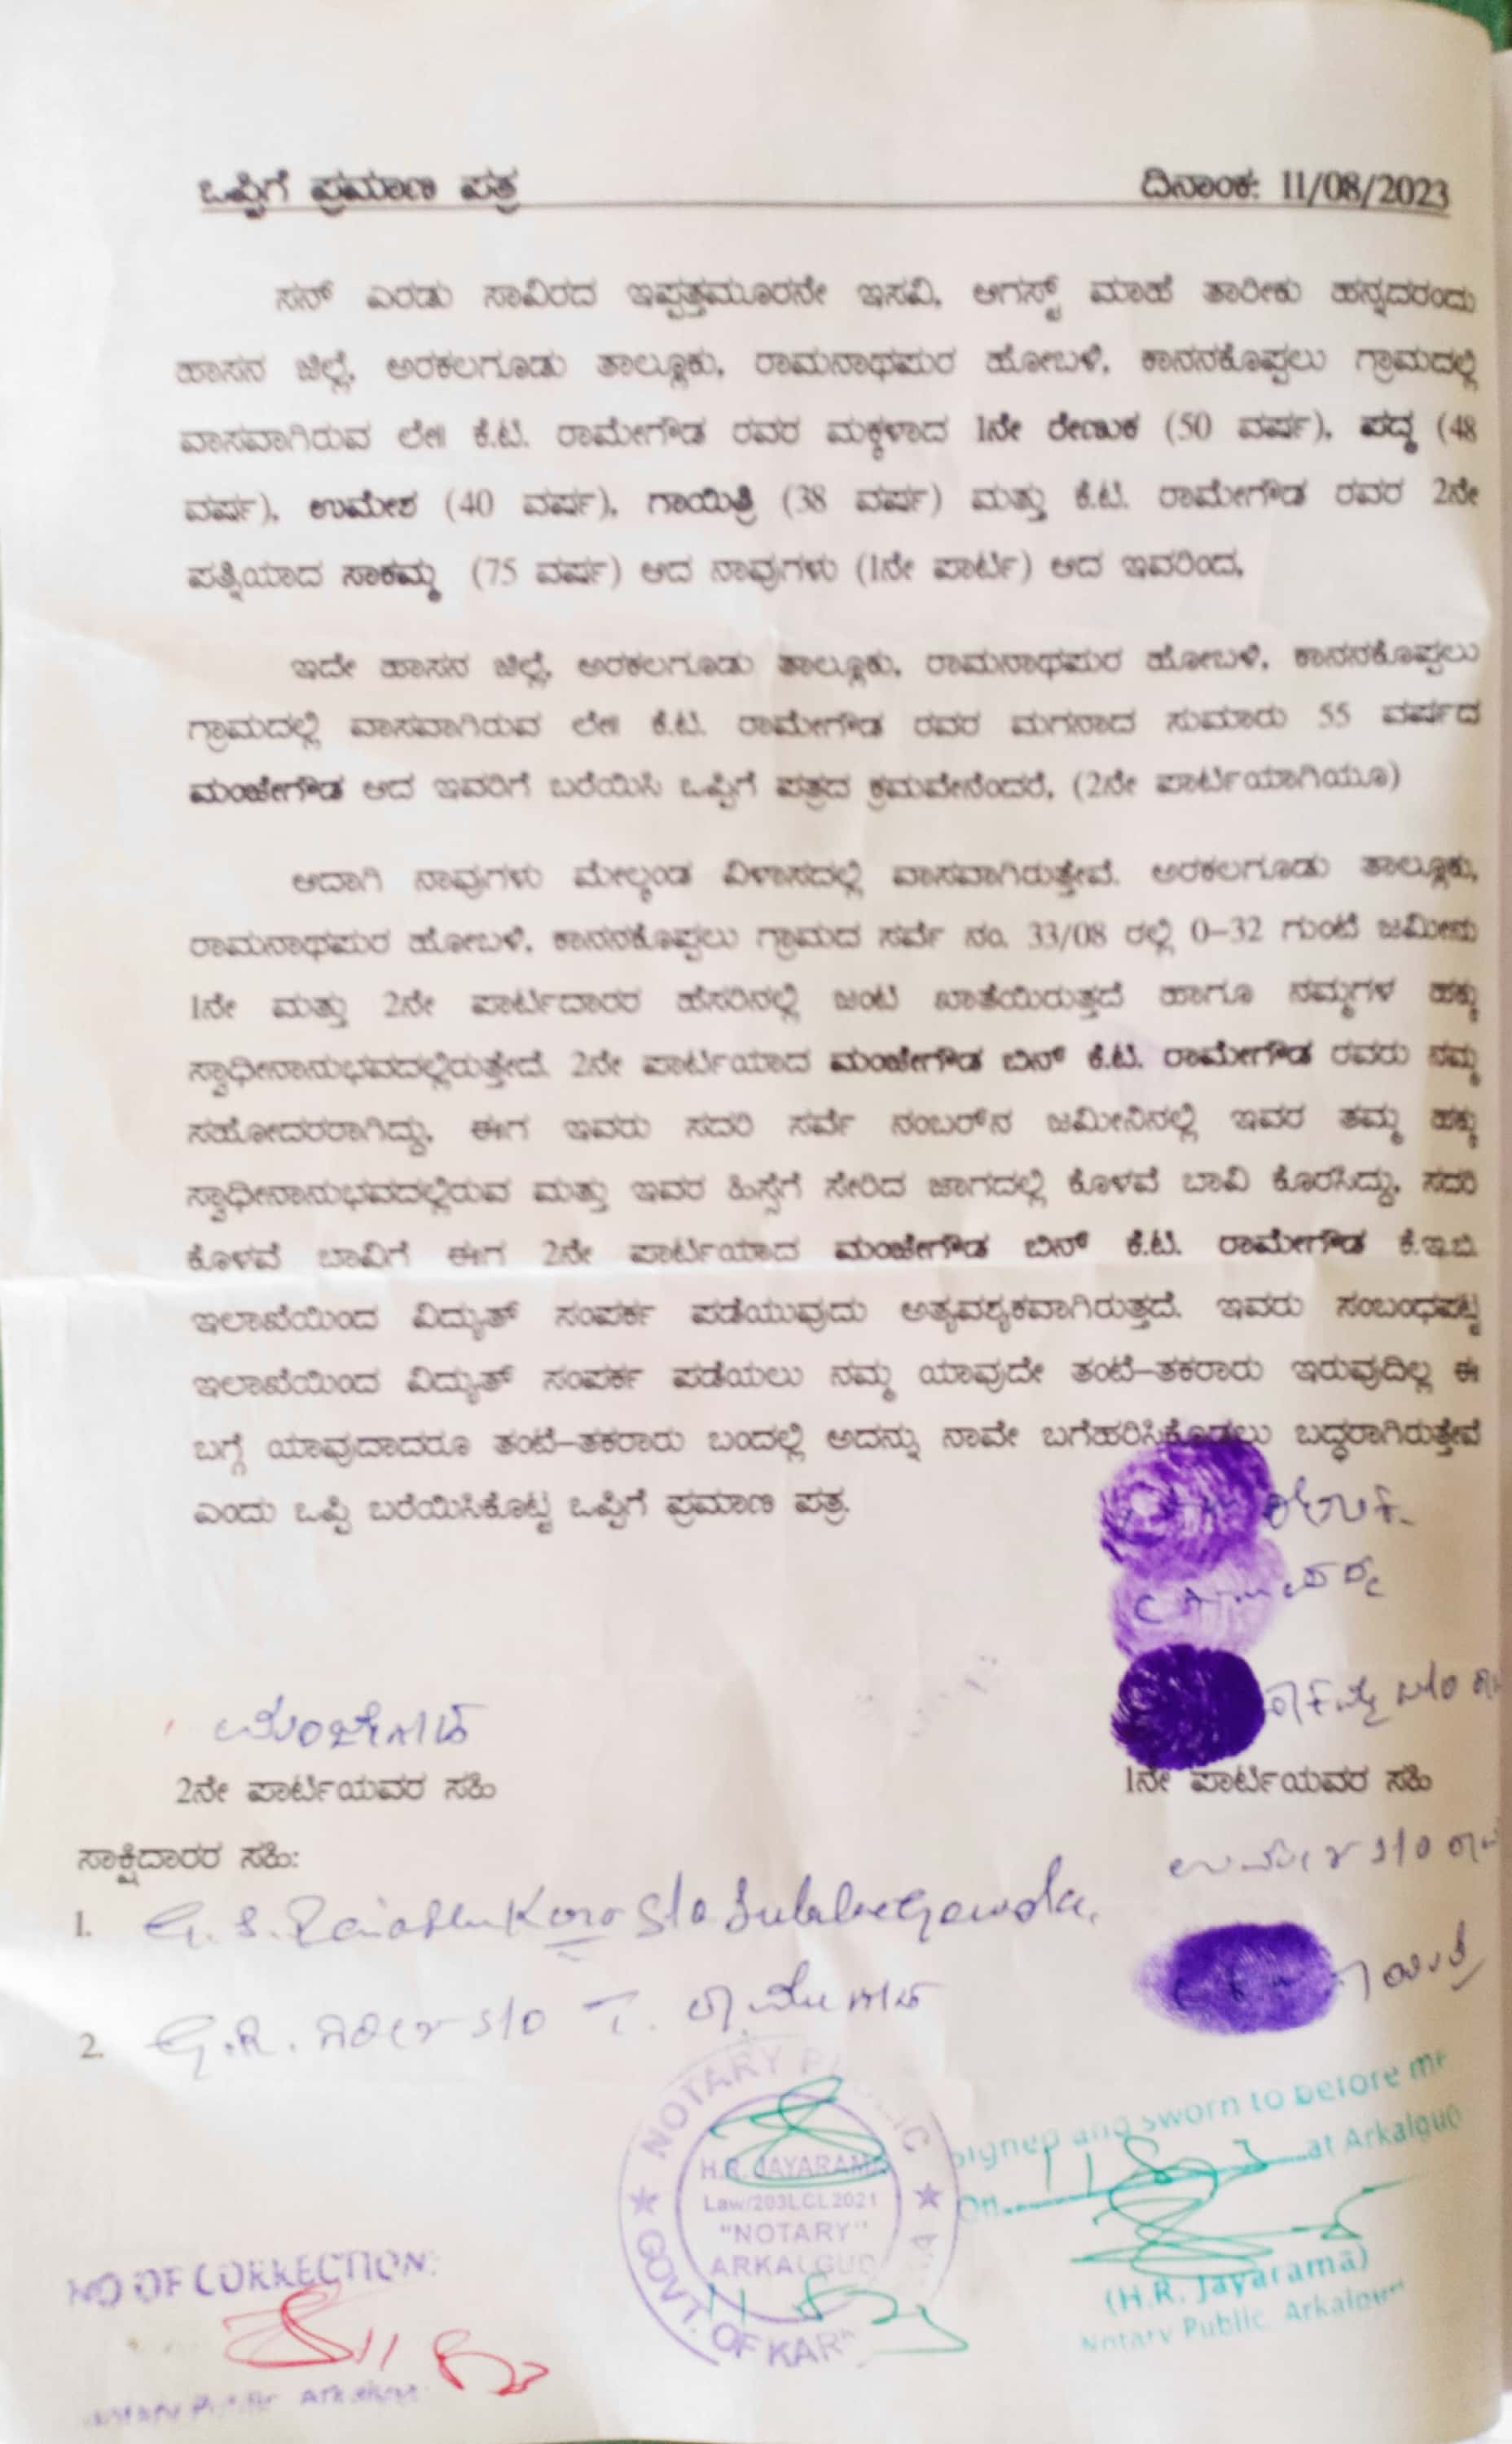 ಒಪ್ಪಿಗೆ ಪ್ರಮಾಣ ಪತ್ರ ದಿನಾಂಕ: 11/08/2023
ಸನ್ ಎರಡು ಸಾವಿರದ ಇಪ್ಪತ್ತಮೂರನೇ ಇಸವಿ, ಆಗಸ್ಟ್ ಮಾಹೆ ತಾರೀಕು ಹನ್ನದರಂದು
ಹಾಸನ ಜಿಲ್ಲೆ, ಅರಕಲಗೂಡು ತಾಲ್ಲೂಕು, ರಾಮನಾಥಪುರ ಹೋಬಳಿ, ಕಾನನಕೊಪ್ಪಲು ಗ್ರಾಮದಲ್ಲಿ
ವಾಸವಾಗಿರುವ ಲೇ|| ಕೆ.ಟಿ. ರಾಮೇಗೌಡ ರವರ ಮಕ್ಕಳಾದ 1ನೇ ರೇಣುಕ (50 ವರ್ಷ), ಪದ್ಮ (48
ವರ್ಷ), ಉಮೇಶ (40 ವರ್ಷ), ಗಾಯಿತ್ರಿ (38 ವರ್ಷ) ಮತ್ತು ಕೆ.ಟಿ. ರಾಮೇಗೌಡ ರವರ 2ನೇ
ಪತ್ನಿಯಾದ ಸಾಕಮ್ಮ (75 ವರ್ಷ) ಆದ ನಾವುಗಳು (1ನೇ ಪಾರ್ಟಿ) ಆದ ಇವರಿಂದ,
ಇದೇ ಹಾಸನ ಜಿಲ್ಲೆ, ಅರಕಲಗೂಡು ತಾಲ್ಲೂಕು, ರಾಮನಾಥಪುರ ಹೋಬಳಿ, ಕಾನನಕೊಪ್ಪಲು
ಗ್ರಾಮದಲ್ಲಿ ವಾಸವಾಗಿರುವ ಲೇ|| ಕೆ.ಟಿ. ರಾಮೇಗೌಡ ರವರ ಮಗನಾದ ಸುಮಾರು 55 ವರ್ಷದ
ಮಂಜೇಗೌಡ ಆದ ಇವರಿಗೆ ಬರೆಯಿಸಿ ಒಪ್ಪಿಗೆ ಪತ್ರದ ಕ್ರಮವೇನೆಂದರೆ, (2ನೇ ಪಾರ್ಟಿಯಾಗಿಯೂ)
ಆದಾಗಿ ನಾವುಗಳು ಮೇಲ್ಕಂಡ ವಿಳಾಸದಲ್ಲಿ ವಾಸವಾಗಿರುತ್ತೇವೆ. ಅರಕಲಗೂಡು ತಾಲ್ಲೂಕು,
ರಾಮನಾಥಪುರ ಹೋಬಳಿ, ಕಾನನಕೊಪ್ಪಲು ಗ್ರಾಮದ ಸರ್ವೆ ನಂ. 33/08 ರಲ್ಲಿ 0-32 ಗುಂಟೆ ಜಮೀನು
1ನೇ ಮತ್ತು 2ನೇ ಪಾರ್ಟಿದಾರರ ಹೆಸರಿನಲ್ಲಿ ಜಂಟಿ ಖಾತೆಯಿರುತ್ತದೆ ಹಾಗೂ ನಮ್ಮಗಳ ಹಕ್ಕು
ಸ್ವಾಧೀನಾನುಭವದಲ್ಲಿರುತ್ತೇದೆ. 2ನೇ ಪಾರ್ಟಿಯಾದ ಮಂಜೇಗೌಡ ಬಿನ್ ಕೆ.ಟಿ. ರಾಮೇಗೌಡ ರವರು ನಮ್ಮ
ಸಹೋದರರಾಗಿದ್ದು, ಈಗ ಇವರು ಸದರಿ ಸರ್ವೆ ನಂಬರ್‌ನ ಜಮೀನಿನಲ್ಲಿ ಇವರ ತಮ್ಮ ಹಕ್ಕು
ಸ್ವಾಧೀನಾನುಭವದಲ್ಲಿರುವ ಮತ್ತು ಇವರ ಹಿಸ್ಸೆಗೆ ಸೇರಿದ ಜಾಗದಲ್ಲಿ ಕೊಳವೆ ಬಾವಿ ಕೊರಸಿದ್ದು, ಸದರಿ
ಕೊಳವೆ ಬಾವಿಗೆ ಈಗ 2ನೇ ಪಾರ್ಟಿಯಾದ ಮಂಜೇಗೌಡ ಬಿನ್ ಕೆ.ಟಿ. ರಾಮೇಗೌಡ ಕೆ.ಇ.ಬಿ.
ಇಲಾಖೆಯಿಂದ ವಿದ್ಯುತ್ ಸಂಪರ್ಕ ಪಡೆಯುವುದು ಅತ್ಯವಶ್ಯಕವಾಗಿರುತ್ತದೆ. ಇವರು ಸಂಬಂಧಪಟ್ಟ
ಇಲಾಖೆಯಿಂದ ವಿದ್ಯುತ್ ಸಂಪರ್ಕ ಪಡೆಯಲು ನಮ್ಮ ಯಾವುದೇ ತಂಟೆ-ತಕರಾರು ಇರುವುದಿಲ್ಲ ಈ
ಬಗ್ಗೆ ಯಾವುದಾದರೂ ತಂಟೆ-ತಕರಾರು ಬಂದಲ್ಲಿ ಅದನ್ನು ನಾವೇ ಬಗೆಹರಿಸಿಕೊಡಲು ಬದ್ಧರಾಗಿರುತ್ತೇವೆ
ಎಂದು ಒಪ್ಪಿ ಬರೆಯಿಸಿಕೊಟ್ಟ ಒಪ್ಪಿಗೆ ಪ್ರಮಾಣ ಪತ್ರ.
ಮಂಜೇಗೌಡ
2ನೇ ಪಾರ್ಟಿಯವರ ಸಹಿ 1ನೇ ಪಾರ್ಟಿಯವರ ಸಹಿ
ಸಾಕ್ಷಿದಾರರ ಸಹಿ:
1. G. S. S/o
2. G.R. S/o T.
NOTARY PUBLIC
H.R. JAYARAMA
Law/203LCL2021
"NOTARY"
ARKALGUD
GOVT. OF KAR
Signed and sworn to before me
On 11/8/23 at Arkalgud
(H.R. Jayarama)
Notary Public, Arkalgud
NO OF CORRECTION:
Notary Public Arkalgud